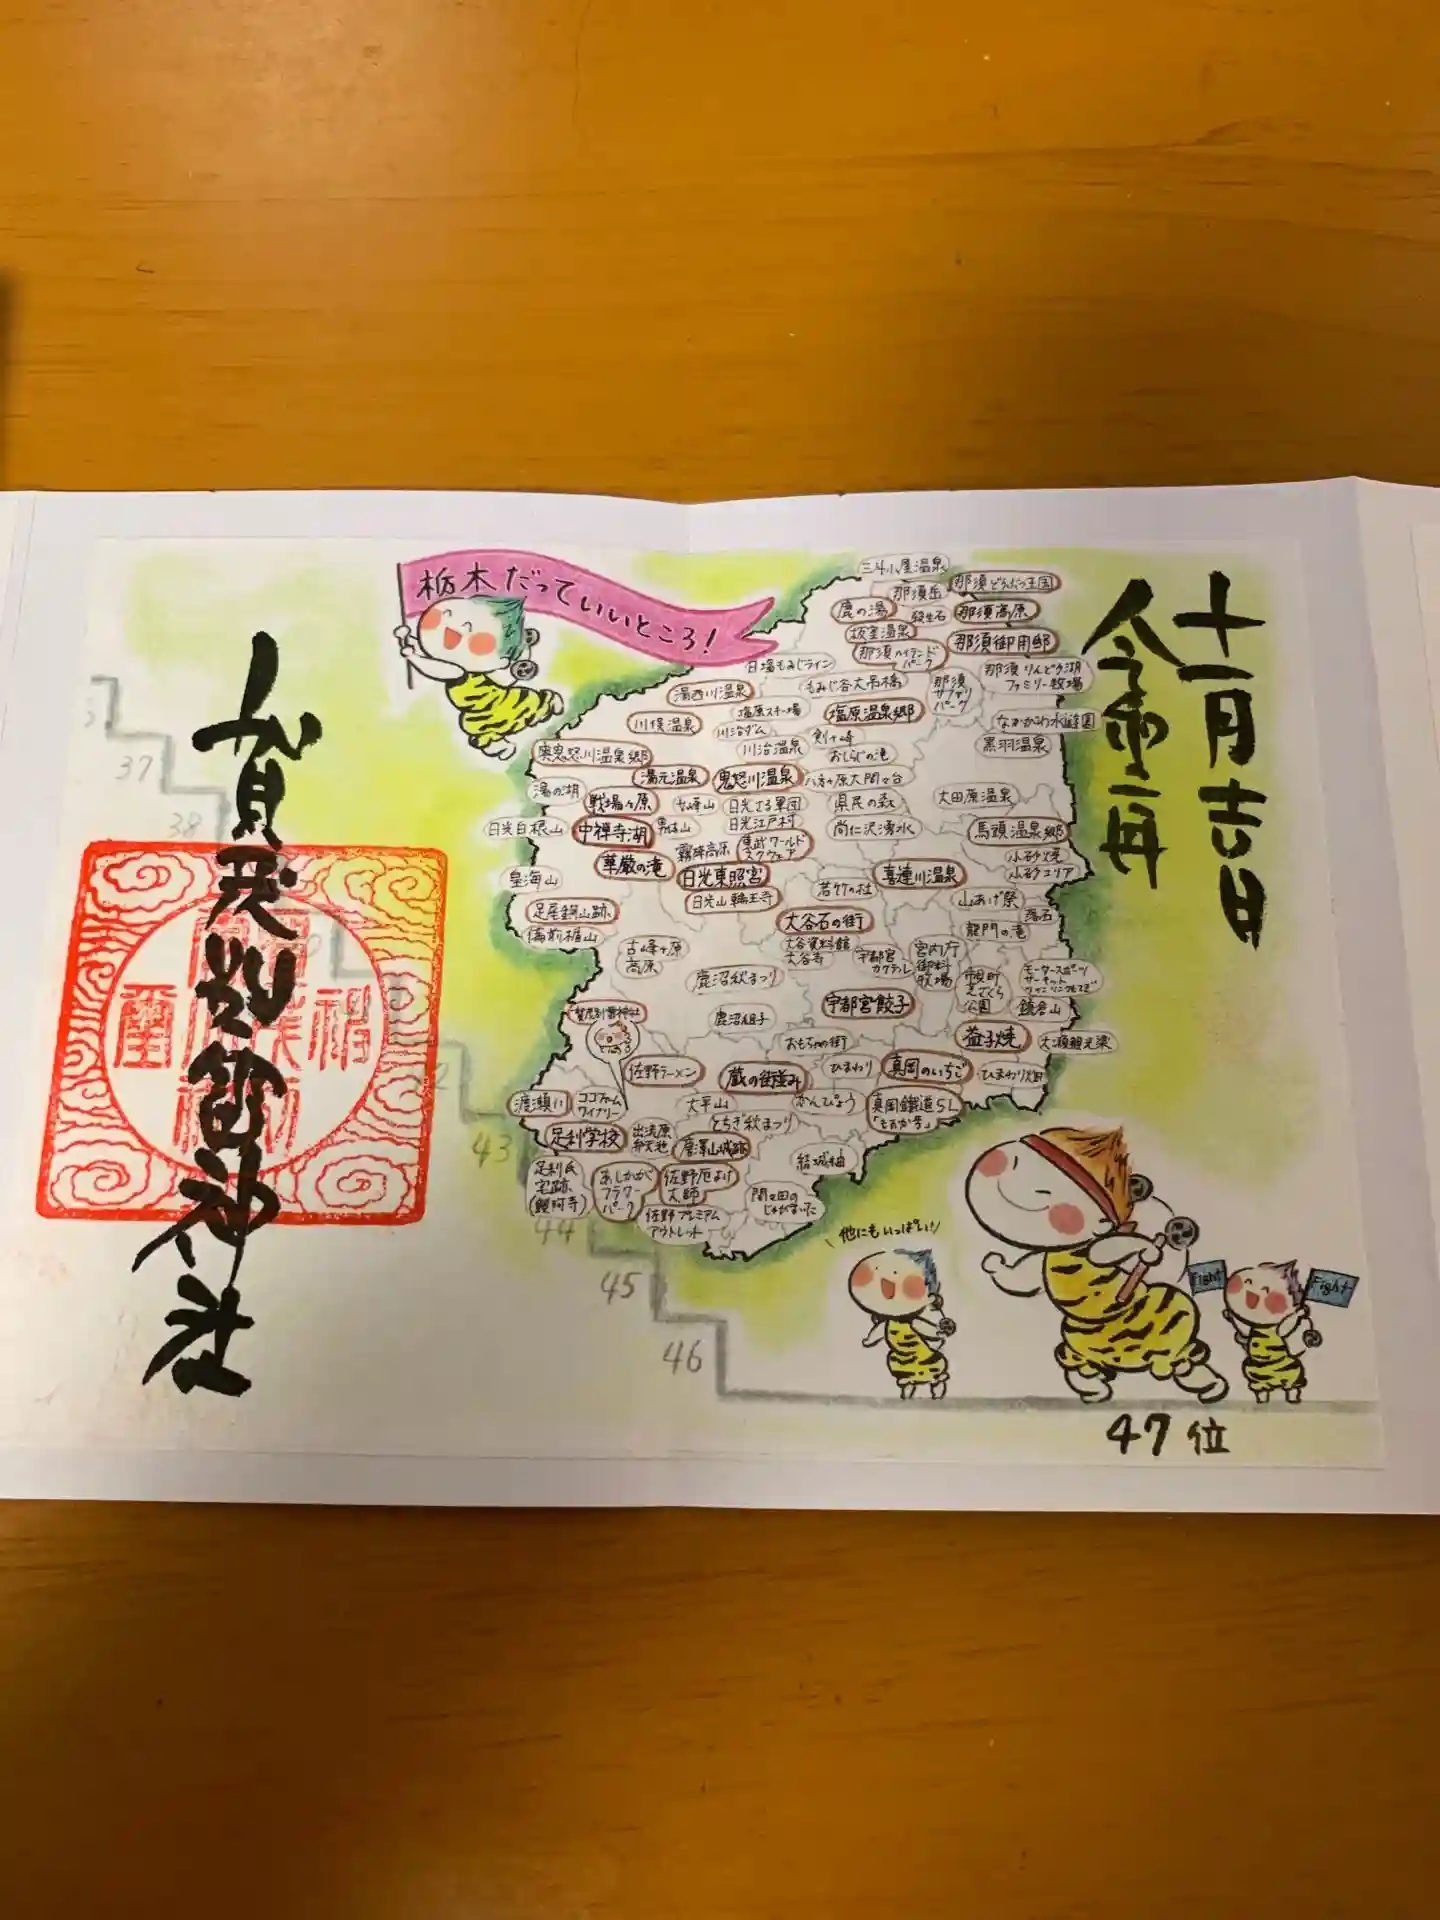 十一月吉日
令和二年
栃木だっていいところ!
三斗小屋温泉
那須岳
那須どうぶつ王国
鹿の湯
殺生石
那須高原
板室温泉
那須御用邸
那須ハイランド
パーク
日塩もみじライン
もみじ谷大吊橋
那須
サファリ
パーク
那須りんどう湖
ファミリー牧場
湯西川温泉
塩原スキー場
塩原温泉郷
川俣温泉
川治ダム
なかがわ水遊園
奥鬼怒川温泉郷
川治温泉
おしらじの滝
黒羽温泉
湯元温泉
鬼怒川温泉
八方ヶ原大間々台
湯の湖
戦場ヶ原
女峰山
日光さる軍団
県民の森
大田原温泉
日光白根山
中禅寺湖
男体山
日光江戸村
尚仁沢湧水
馬頭温泉郷
華厳の滝
霧降高原
東武ワールド
スクウェア
小砂焼
小砂エリア
皇海山
日光東照宮
喜連川温泉
日光山輪王寺
若竹の杜
山あげ祭
足尾銅山跡
大谷石の街
龍門の滝
備前楯山
古峰ヶ原
高原
大谷資料館
大谷寺
宇都宮
カクテル
宮内庁
御料
牧場
鹿沼秋まつり
市貝町
芝ざくら
公園
モータースポーツ
サーキット
ツインリンクもてぎ
宇都宮餃子
鎌倉山
賀茂別雷神社
鹿沼組子
おもちゃの街
益子焼
大瀬観光梁
佐野ラーメン
蔵の街並み
ひまわり
真岡のいちご
ひまわり畑
渡瀬川
ココファーム
ワイナリー
大平山
かんぴょう
真岡鐵道SL
「もおか号」
足利学校
出流原
弁天池
とちぎ秋まつり
唐澤山城跡
結城紬
足利氏
宅跡
(鑁阿寺)
あしかが
フラワー
パーク
佐野厄よけ
大師
間々田の
じゃがまいた
佐野プレミアム
アウトレット
他にもいっぱい!
Fight
Fight
37
38
43
44
45
46
47位
賀茂別雷神社